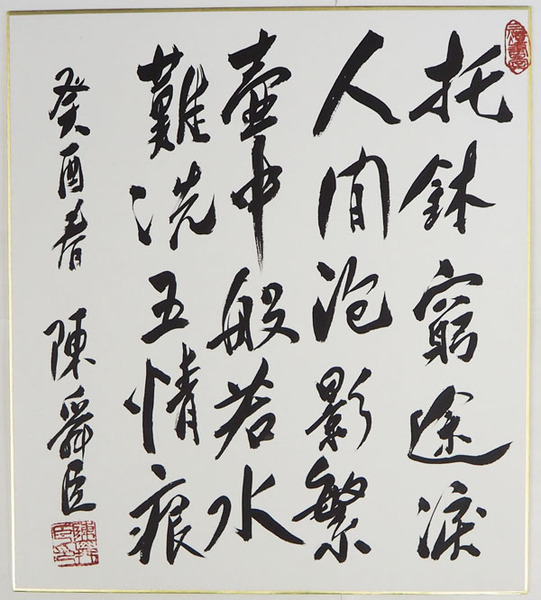 托鉢窮途淚
人间泡影繁
壷中般若水
難洗五情痕
癸酉春 陳舜臣